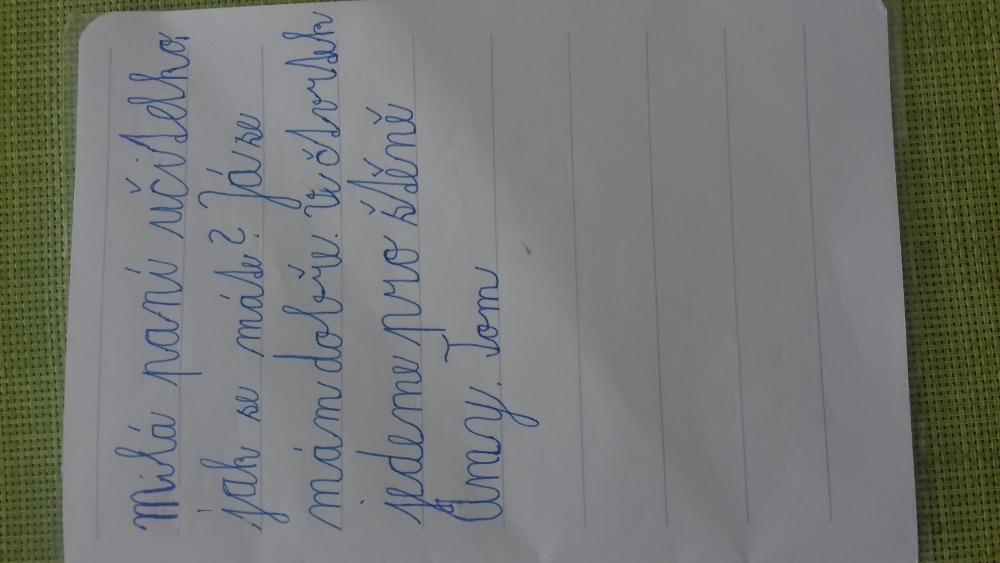 Milá paní učitelko,
jak se máte? Já se
mám dobře. Ve čtvrtek
jedeme pro štěně
Amy. Tom